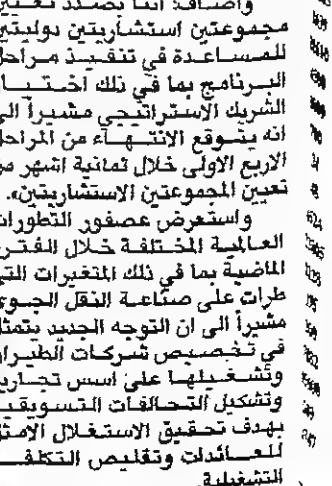 واضاف: اننا بصدد تعيين
مجموعتين استشاريتين دوليتين
للمساعدة في تنفيذ مراحل
البرنامج بما في ذلك اختيار
الشريك الاستراتيجي مشيراً الى
انه يتوقع الانتهاء من المراحل
الاربع الاولى خلال ثمانية اشهر من
تعيين المجموعتين الاستشاريتين».
واستعرض عصفور التطورات
العالمية المختلفة خلال الفترة
الماضية بما في ذلك المتغيرات التي
طرات على صناعة النقل الجوي
مشيراً الى ان التوجه الجديد يتمثل
في تخصيص شركات الطيران
وتشغيلها على اسس تجارية
وتشكيل التحالفات التسويقية
بهدف تحقيق الاستغلال الامثل
للعائدات وتقليص التكلفة
التشغيلية.